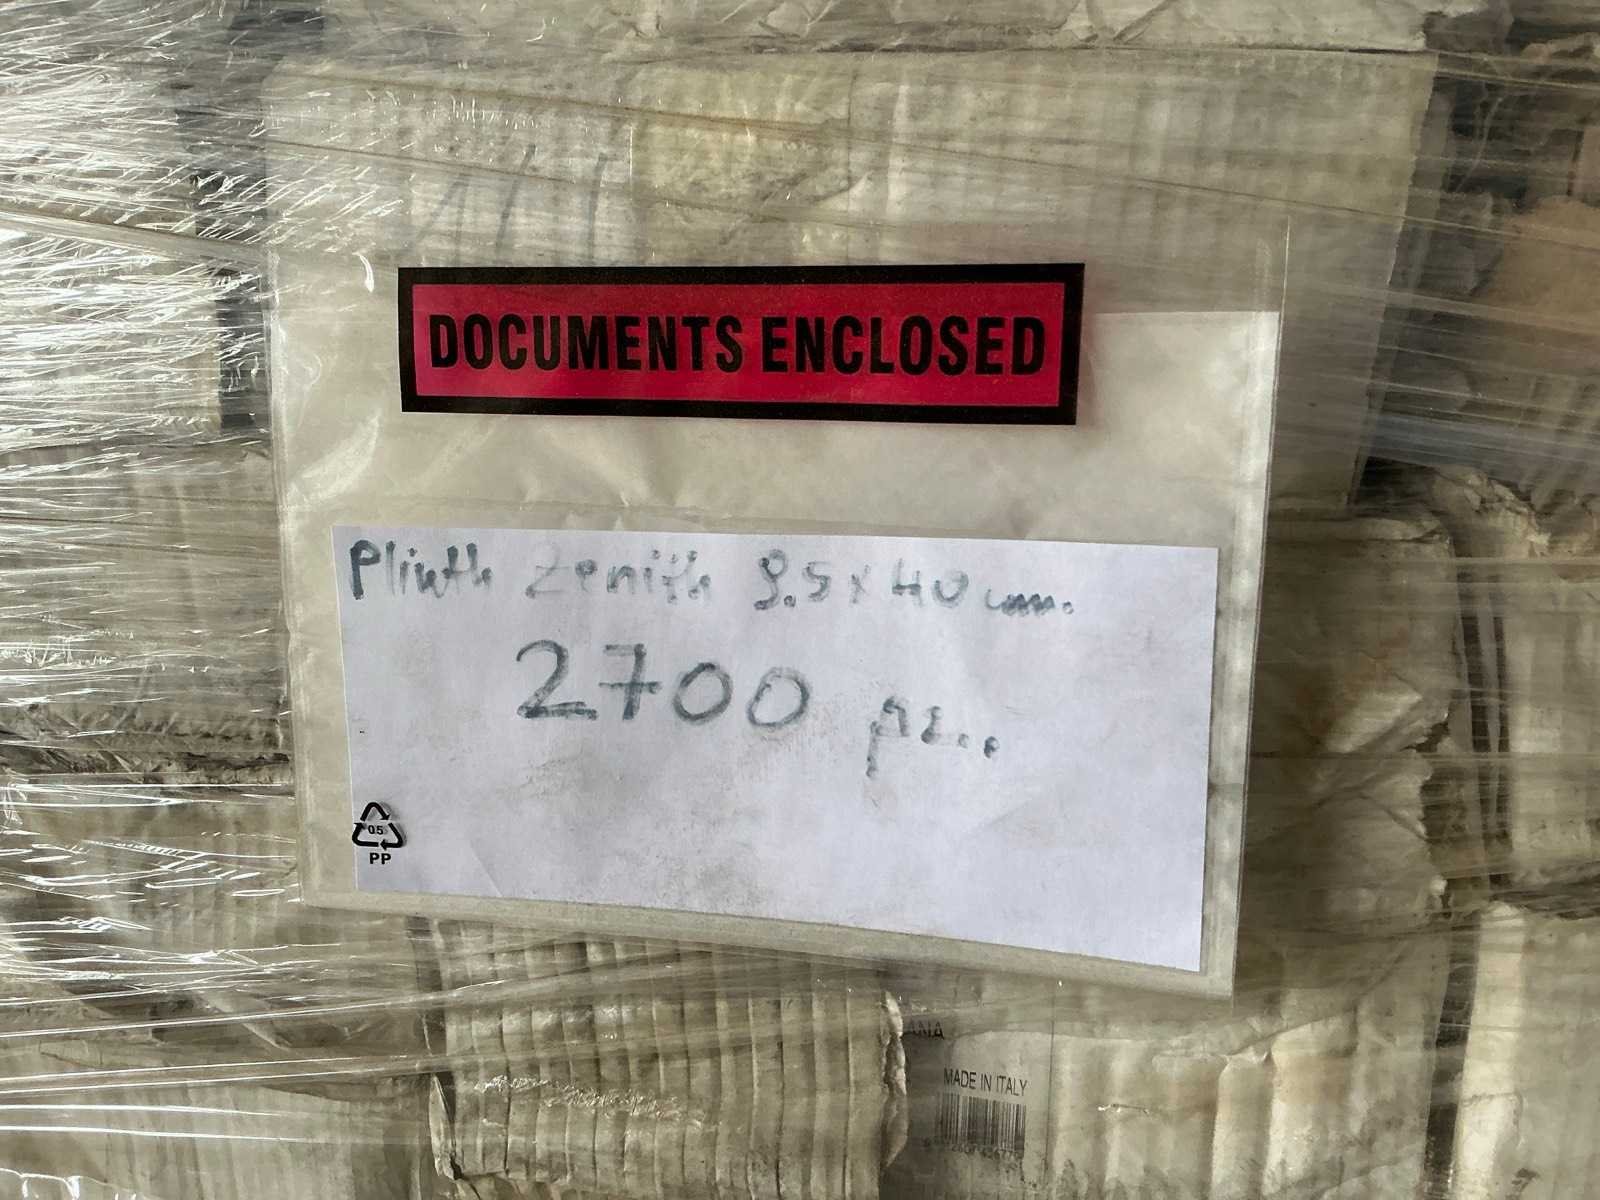 DOCUMENTS ENCLOSED
Plinth Zenith 9.5 x 40 cm.
2700 pz..
05
PP
ANA
MADE IN ITALY